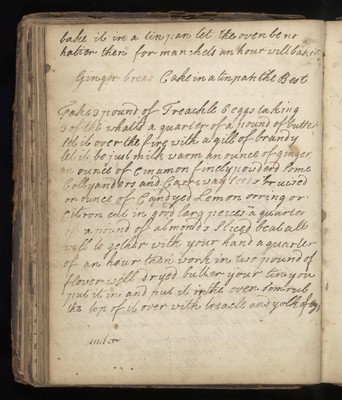 bake it in a tinpan let the oven be no
hotter then for manchets an hour will bake it
Ginger bread Cake in a tinpan the Best
Take 3 pound of Treackle 6 eggs taking
3 of the whaits a quarter of a pound of butter
set it over the fire with a gill of brandy
let it be just milk warm an ounce of ginger
an ounce of Cinamon finely powderd some
Collyanders and Carrway Seeds Bruised
an ounce of Candyed Lemon orring or
Citron cut in good larg peices a quarter
of a pound of almonds Sliced beat all
well to gether with your hand a quarter
of an hour then work in two pound of
flower well dryed butter your tin you
put it in and put it in the oven rub
the top of it over with treacle and yolk of egg